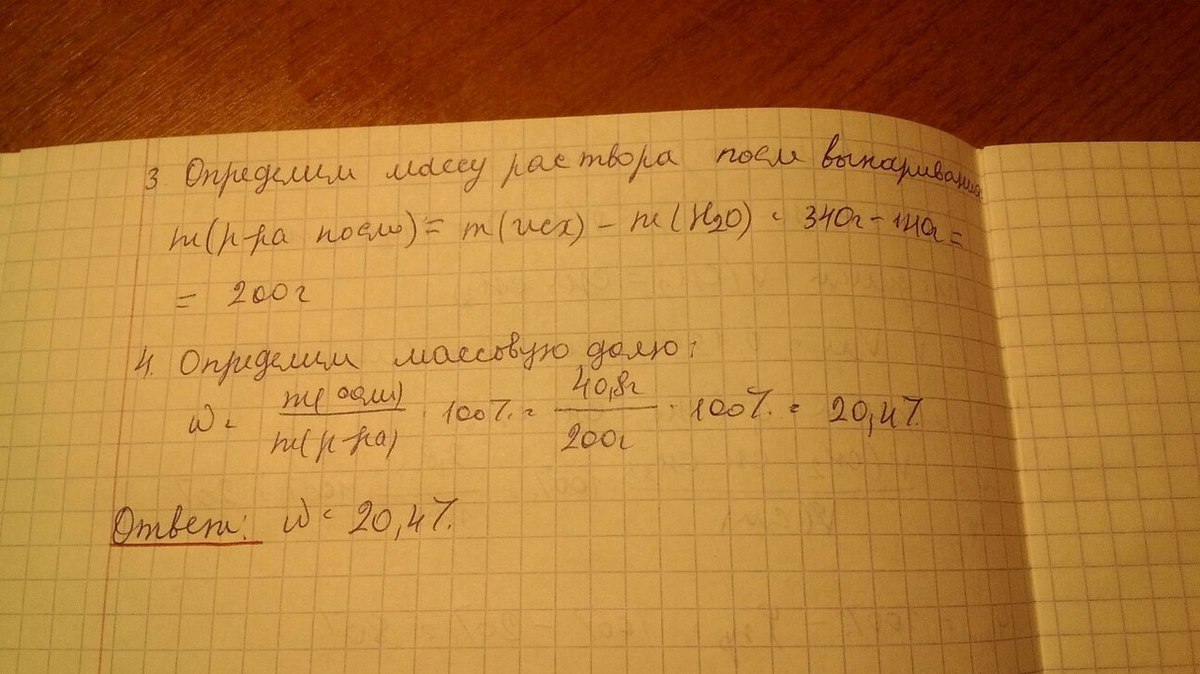 3 Определим массу раствора после выпаривания:
m(р-ра после) = m(исх) - m(H2O) = 340г - 140г =
= 200г
4. Определим массовую долю:
w = m(соли) / m(р-ра) · 100% = 40,8г / 200г · 100% = 20,4%
Ответ: w = 20,4%